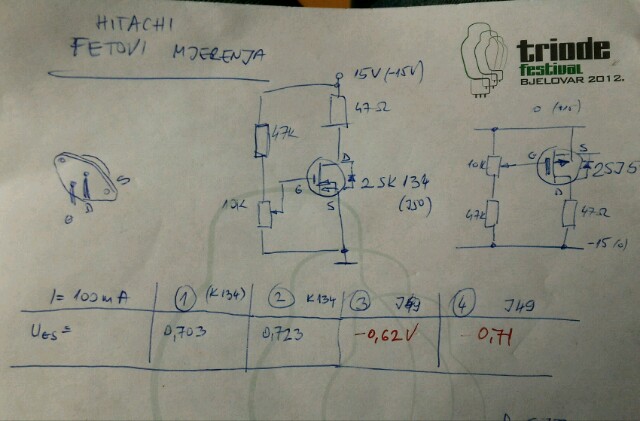 HITACHI
FETOVI MJERENJA
triode
festival
BJELOVAR 2012.
15V(-15V)
47Ω
47K
10K
G
D
S
2SK134
(250)
G
D
S
10K
47K
G
S
D
47Ω
-15(0)
I=100mA
1 (K134)
2 K134
3 J49
4 J49
UGS=
0,703
0,723
-0,62V
-0,71